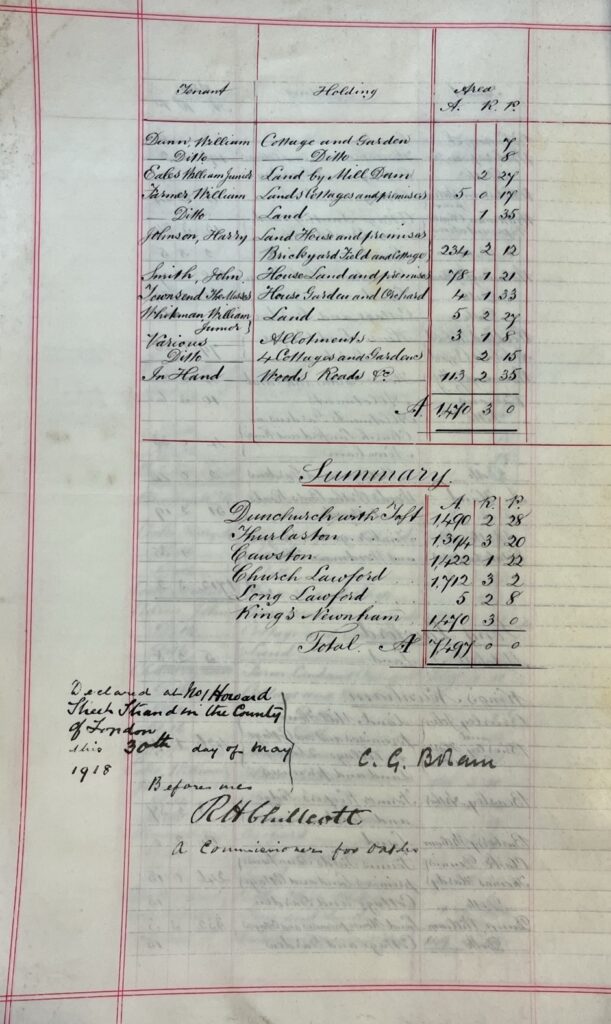 Tenant Holding Area
A. R. P.
Dunn, William Cottage and Garden 7
Ditto Ditto 8
Eales William Junior Land by Mill Dam 2 27
Farmer, William Lands Cottages and premises 5 0 17
Ditto Land 1 35
Johnson, Harry Land House and premises
Brickyard Field and Cottage 234 2 12
Smith, John House Land and premises 78 1 21
Townsend The Misses House Garden and Orchard 4 1 33
Whiteman, William Land 5 2 27
Junior }
Various Allotments 3 1 8
Ditto 4 Cottages and Gardens 2 15
In Hand Woods Roads &c. 113 2 35
A. 1,470 3 0
Summary.
A. R. P.
Dunchurch with Toft 1,490 2 28
Thurlaston 1,394 3 20
Cawston 1,422 1 22
Church Lawford 1,712 3 2
Long Lawford 5 2 8
King's Newnham 1,470 3 0
Total. A. 7,497 0 0
Declared at No 1 Howard
Street Strand in the County
of London
this 30th day of May
1918
C. G. Boham
Before me
R H Chillcott
A Commissioner for Oaths